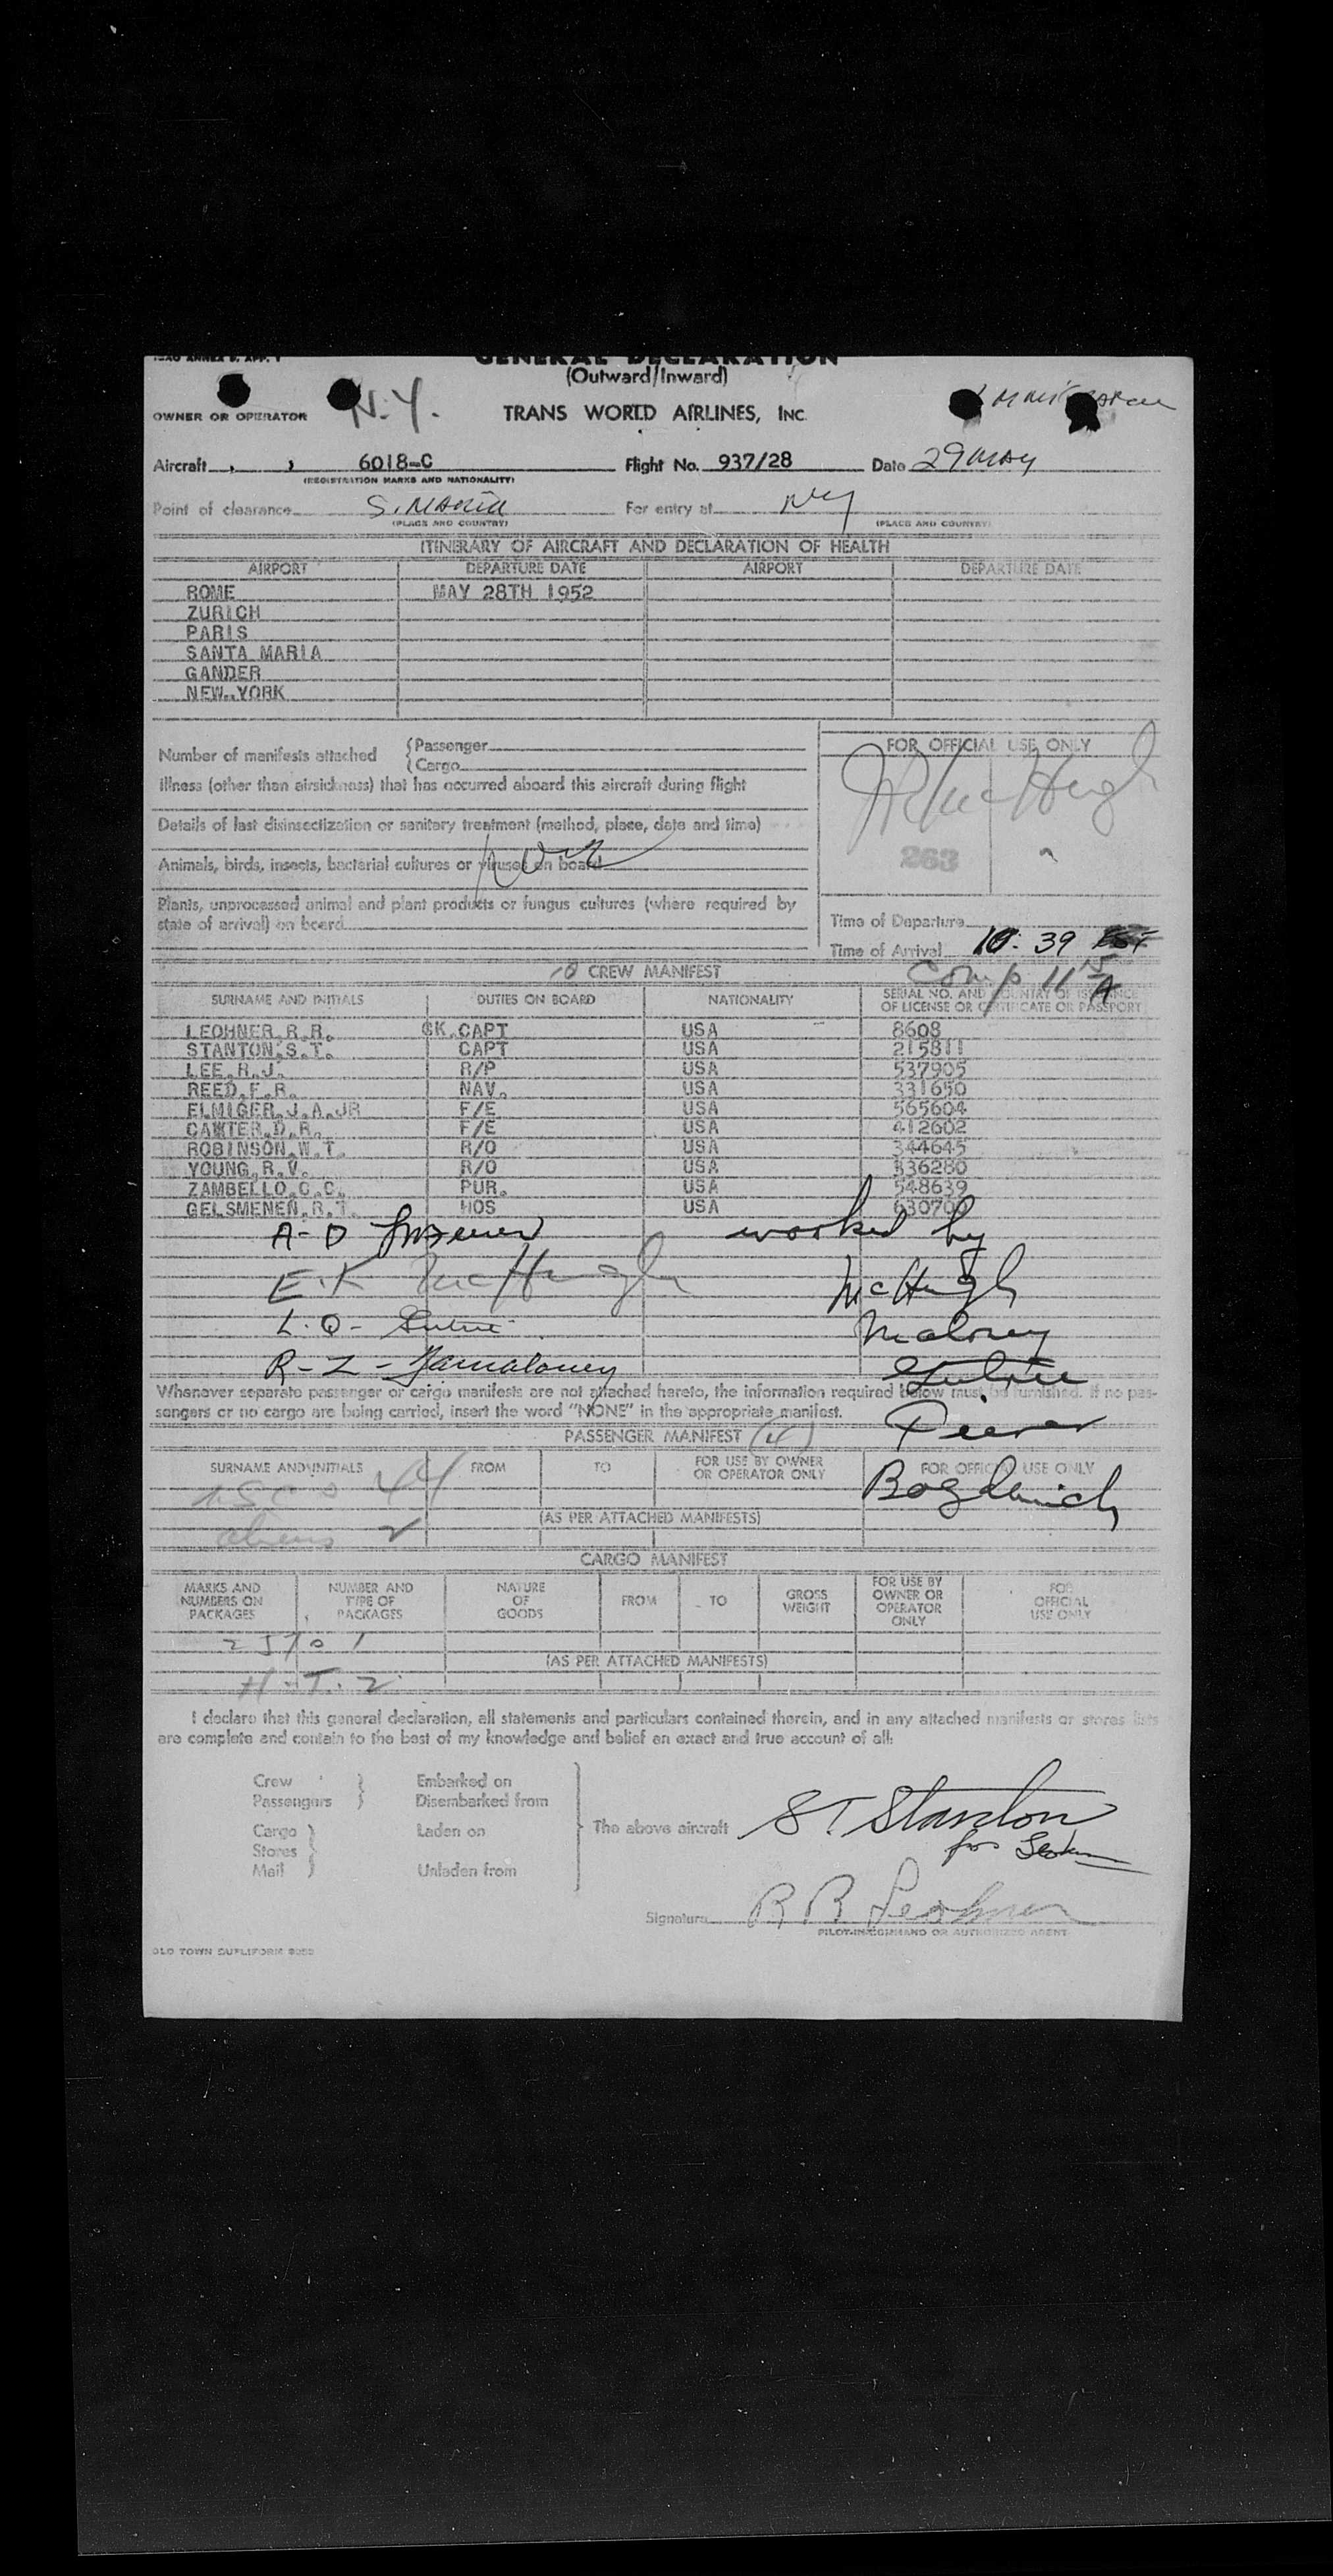 ICAO ANNEX 9, APP. 1
GENERAL DECLARATION
(Outward/Inward)
OWNER OR OPERATOR N.Y. TRANS WORLD AIRLINES, INC.
Aircraft 6018-C Flight No. 937/28 Date 29 MAY
(REGISTRATION MARKS AND NATIONALITY)
Point of clearance S. MARIA For entry at NY
(PLACE AND COUNTRY) (PLACE AND COUNTRY)
ITINERARY OF AIRCRAFT AND DECLARATION OF HEALTH
AIRPORT DEPARTURE DATE AIRPORT DEPARTURE DATE
ROME MAY 28TH 1952
ZURICH
PARIS
SANTA MARIA
GANDER
NEW YORK
Number of manifests attached {Passenger
{Cargo
FOR OFFICIAL USE ONLY
McHugh
263
Illness (other than airsickness) that has occurred aboard this aircraft during flight
Details of last disinsectization or sanitary treatment (method, place, date and time)
Animals, birds, insects, bacterial cultures or viruses on board
Plants, unprocessed animal and plant products or fungus cultures (where required by
state of arrival) on board
Time of Departure
Time of Arrival 10:39 EST
Comp 11 15 A
10 CREW MANIFEST
SURNAME AND INITIALS DUTIES ON BOARD NATIONALITY SERIAL NO. AND COUNTRY OF ISSUANCE
OF LICENSE OR CERTIFICATE OR PASSPORT
LEOHNER.R.R. CK.CAPT USA 8608
STANTON.S.T. CAPT USA 215811
LEE.R.J. R/P USA 537905
REED.F.R. NAV. USA 331650
ELMIGER.J.A.JR F/E USA 565604
CAWTER.D.R. F/E USA 412602
ROBINSON.W.T. R/O USA 344645
YOUNG.R.V. R/O USA 336280
ZAMBELLO.C.C. PUR. USA 548639
GELSMENEN.R.T. HOS USA 630700
A-D worked by
E.K McHugh McHugh
L.Q- Maloney
R-Z- Jamaloney
Whenever separate passenger or cargo manifests are not attached hereto, the information required below must be furnished. If no pas-
sengers or no cargo are being carried, insert the word "NONE" in the appropriate manifest.
PASSENGER MANIFEST
SURNAME AND INITIALS FROM TO FOR USE BY OWNER
OR OPERATOR ONLY FOR OFFICIAL USE ONLY
USC 44 Bogdanich
aliens 2 (AS PER ATTACHED MANIFESTS)
CARGO MANIFEST
MARKS AND
NUMBERS ON
PACKAGES NUMBER AND
TYPE OF
PACKAGES NATURE
OF
GOODS FROM TO GROSS
WEIGHT FOR USE BY
OWNER OR
OPERATOR
ONLY FOR
OFFICIAL
USE ONLY
(AS PER ATTACHED MANIFESTS)
H.T. 2
I declare that this general declaration, all statements and particulars contained therein, and in any attached manifests or stores lists
are complete and contain to the best of my knowledge and belief an exact and true account of all:
Crew } Embarked on
Passengers } Disembarked from
Cargo } Laden on
Stores }
Mail } Unladen from
The above aircraft S T Stanton
for
Signature R R Leohner
PILOT-IN-COMMAND OR AUTHORIZED AGENT
OLD TOWN DUPLIFORM